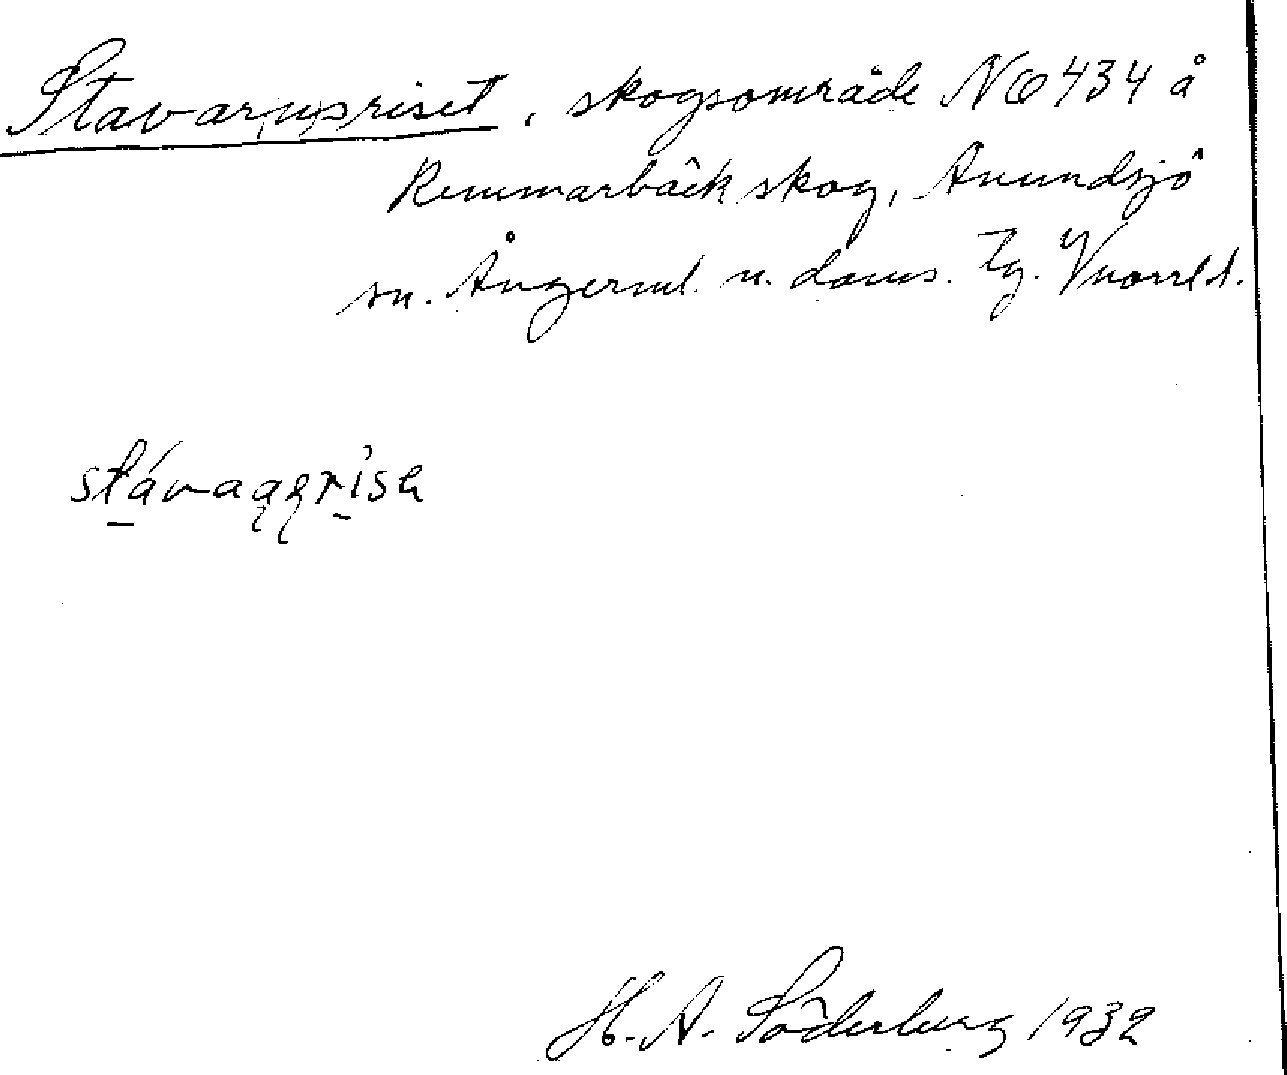 Stavar(n)sriset, skogsområde NO 434 å
Remmarbäck skog, Anundsjö
sn. Ångerml. n. doms. Tg.
H. A. Söderberg 1932